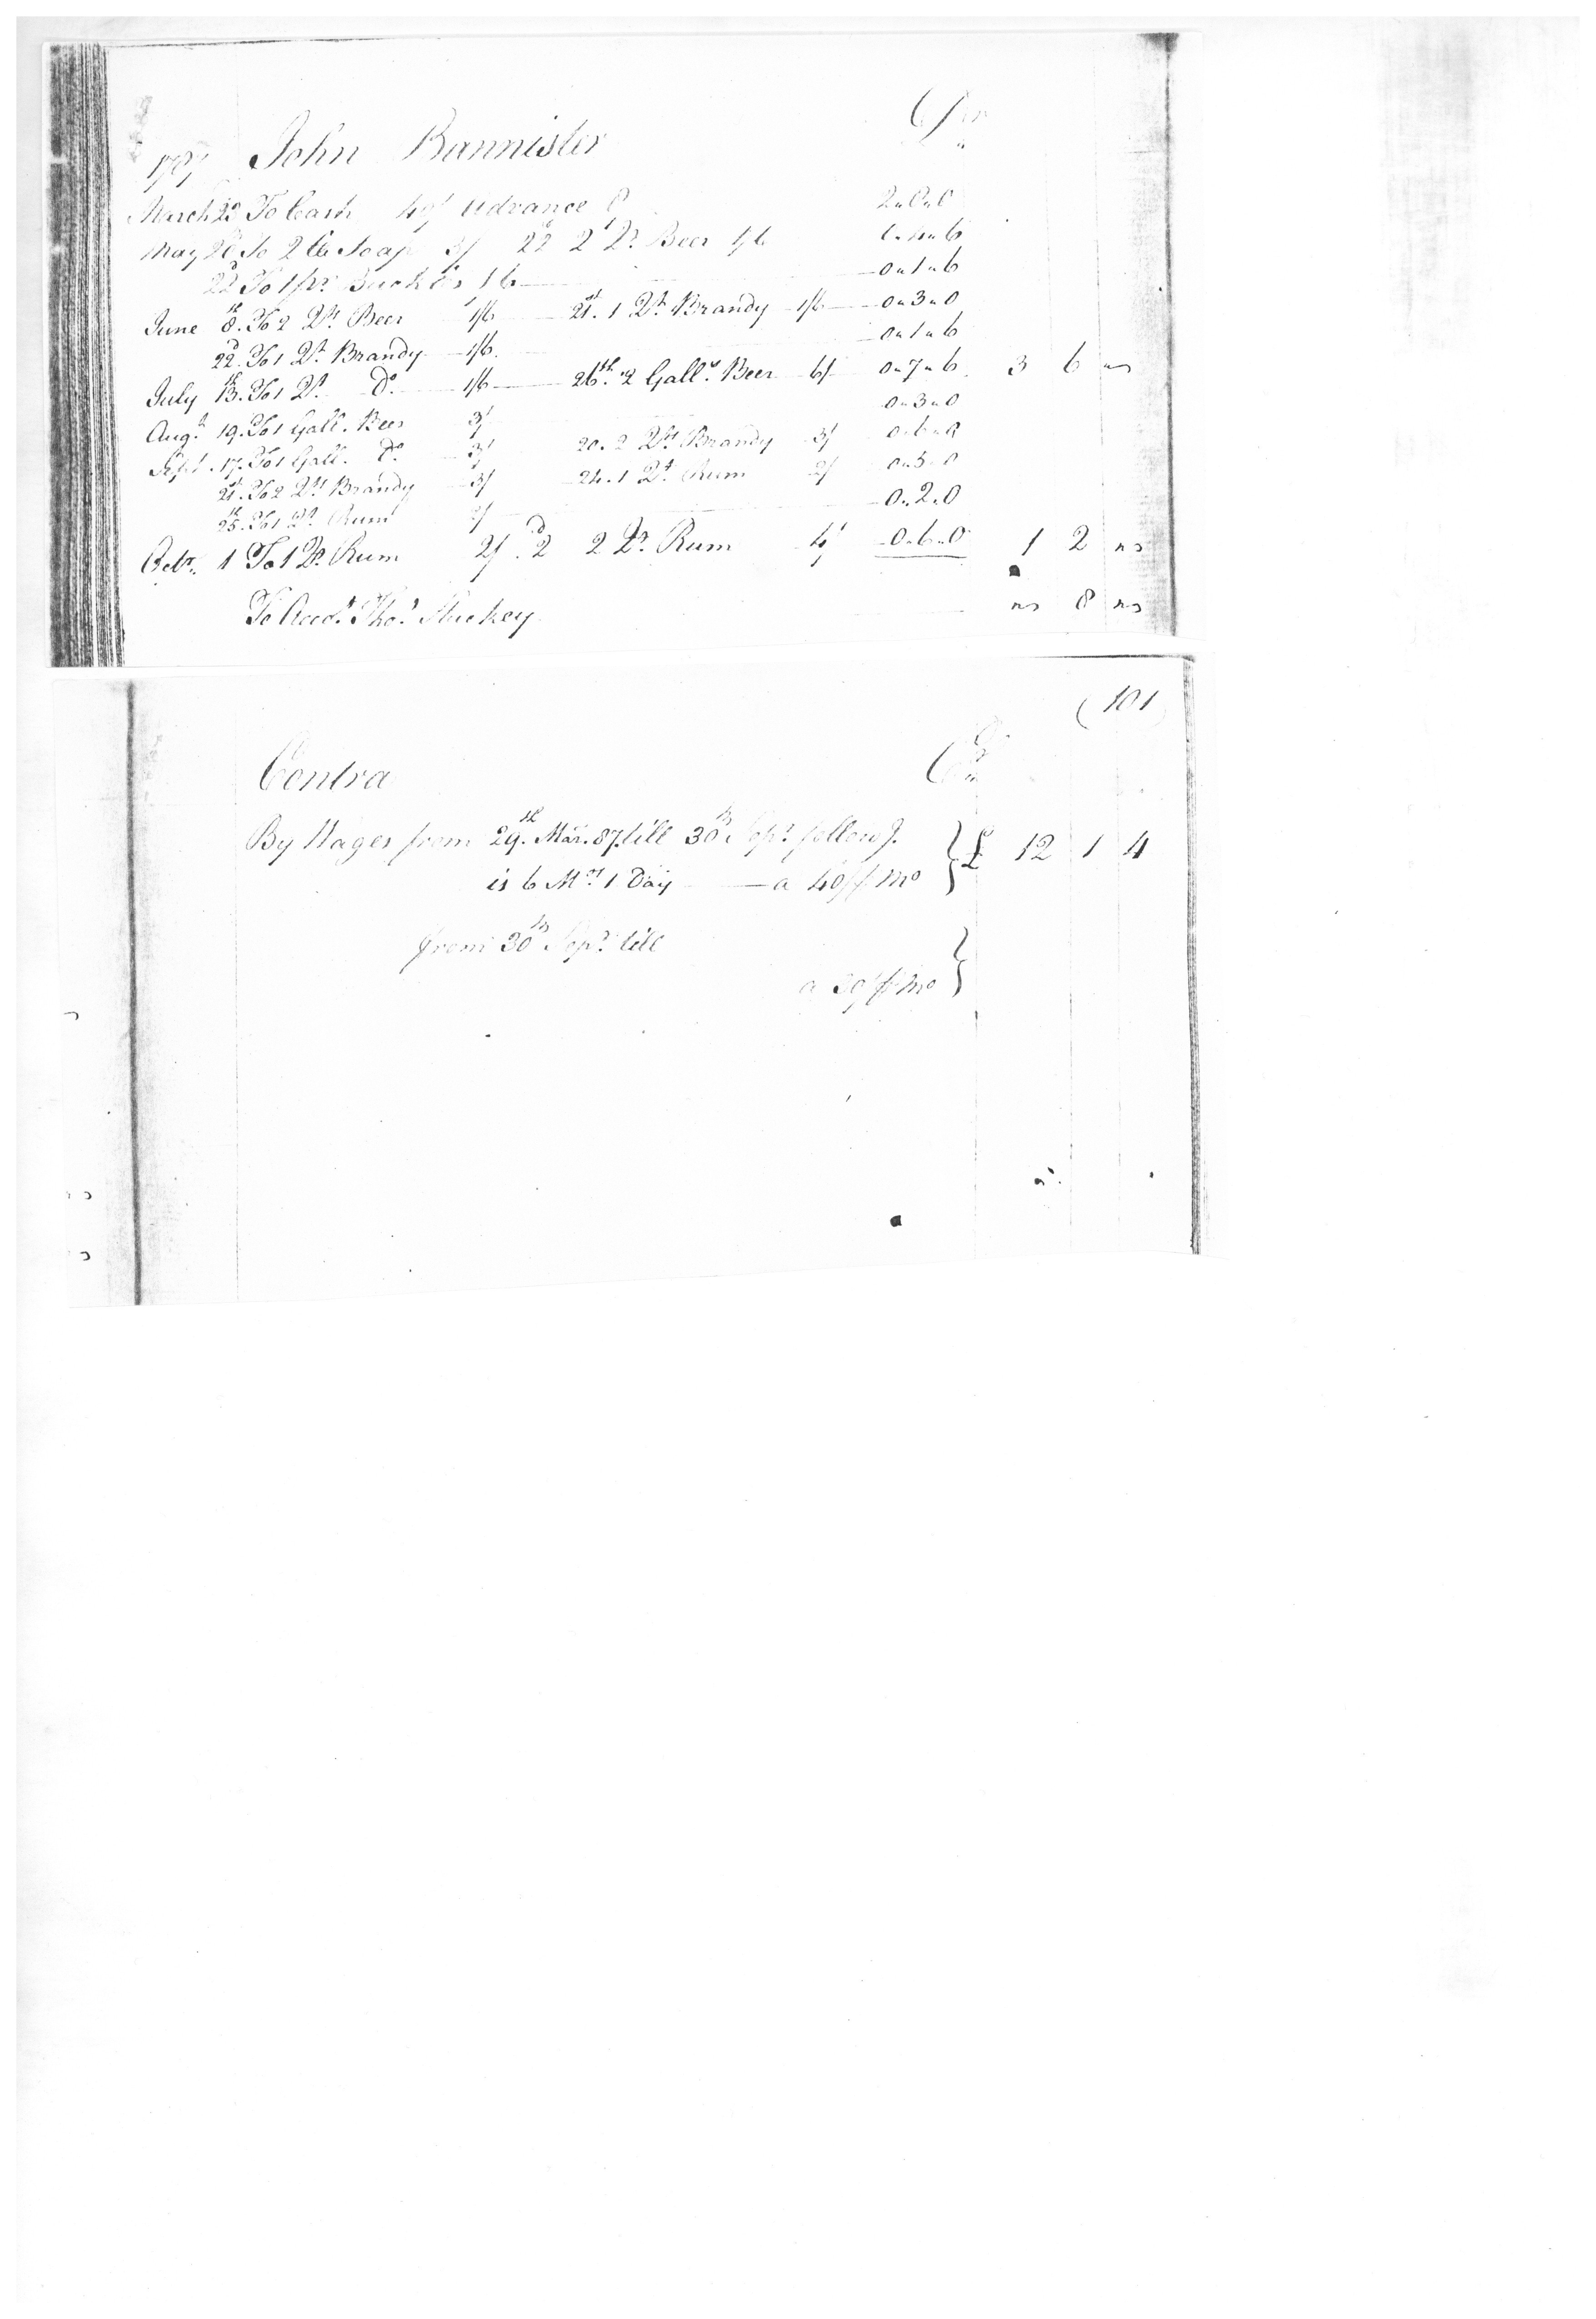 1787 John Bannister Dr
March 20 To Cash 40/ Advance 2 " 0 " 0
May 20 To 2 lb Soap 3/ 22d 2 Qts Beer 1/6 0 " 4 " 6
22d To 1 pr. Buckles 1/6 0 " 1 " 6
June 8th. To 2 Qts Beer 1/6 21st. 1 Qt Brandy 1/6 0 " 3 " 0
22d. To 1 Qt. Brandy 1/6. 0 " 1 " 6
July 13th. To 1 Qt. Do. 1/6 26th. 2 Galls. Beer 6/ 0 " 7 " 6 3 6 "
Augt. 19. To 1 Gall. Beer 3/ 0 " 3 " 0
Sept. 17. To 1 Gall. Do. 3/ 20. 2 Qts Brandy 3/ 0 " 6 " 0
21st. To 2 Qts Brandy 3/ 24. 1 Qt. Rum 2/ 0 " 5 " 0
25th. To 1 Qt. Rum 2/ 0 " 2 " 0
Octr. 1 To 1 Qt. Rum 2/ 2d 2 Qts. Rum 4/ 0 " 6 " 0 1 2 "
To Accot. Thos. Stuckey " 8 "
(101)
Contra Cr
By Wages from 29th. Mar. 87. till 30th Sept. followg.
is 6 Mos 1 Day a 40/ p Mo } £ 12 1 4
from 30th Sept. till
a p Mo }